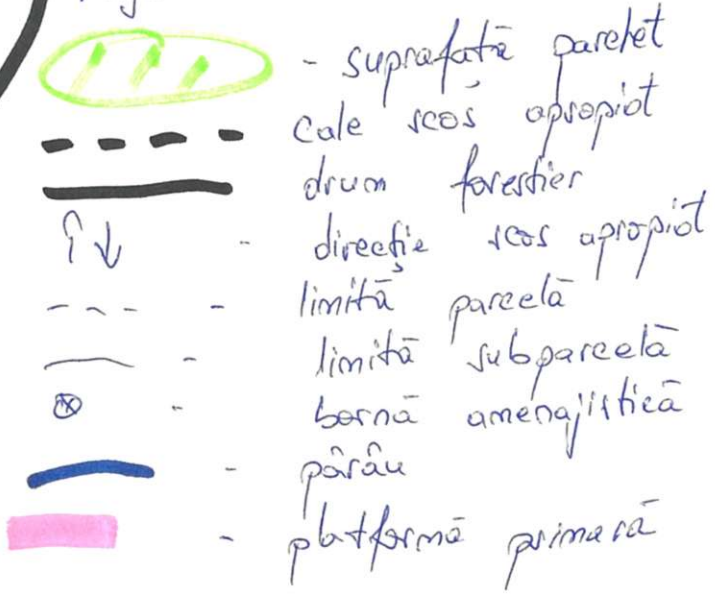 - suprafață parchet
cale scos apropiat
drum forestier
- direcție scos apropiat
- limită parcelă
- limită subparcelă
- bornă amenajistică
- pârâu
- platformă primară